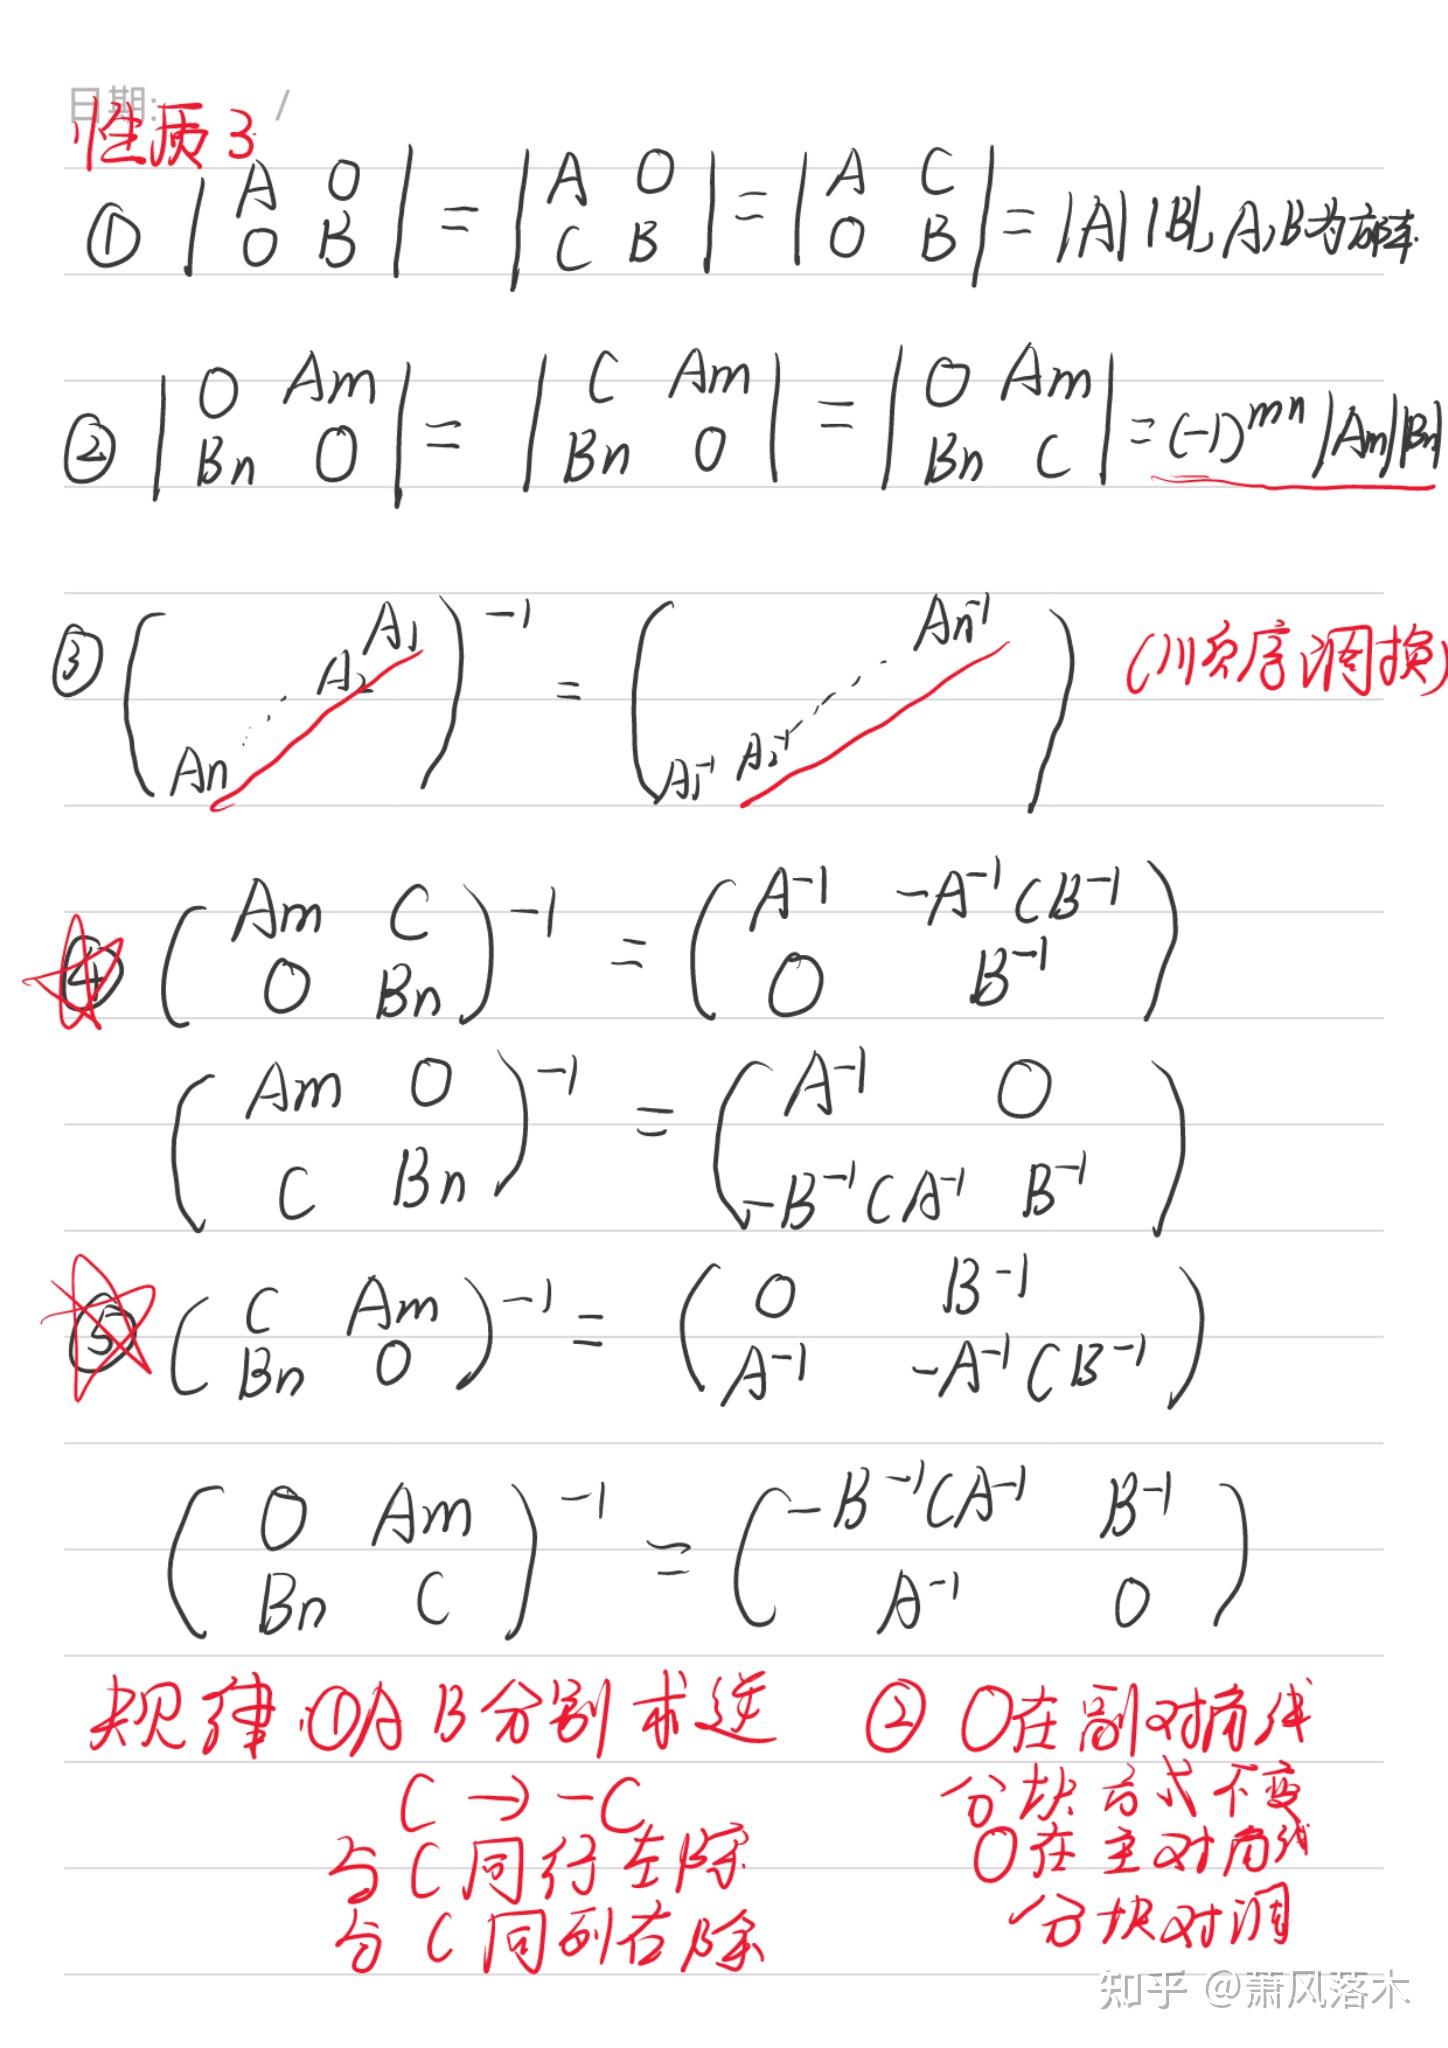 日期: /
性质3
① | A O ; O B | = | A O ; C B | = | A C ; O B | = |A| |B|, A,B为方阵.
② | O Am ; Bn O | = | C Am ; Bn O | = | O Am ; Bn C | = (-1)^mn |Am||Bn|
③ ( A1 A2 ⋰ An )^-1 = ( An^-1 ⋰ A2^-1 A1^-1 ) (顺序调换)
④ ( Am C ; O Bn )^-1 = ( A^-1 -A^-1CB^-1 ; O B^-1 )
( Am O ; C Bn )^-1 = ( A^-1 O ; -B^-1CA^-1 B^-1 )
⑤ ( C Am ; Bn O )^-1 = ( O B^-1 ; A^-1 -A^-1CB^-1 )
( O Am ; Bn C )^-1 = ( -B^-1CA^-1 B^-1 ; A^-1 O )
规律:①A B分别求逆
C→-C
与C同行左除
与C同列右除
② O在副对角线
分块方式不变
O在主对角线
分块对调
知乎 @萧风落木